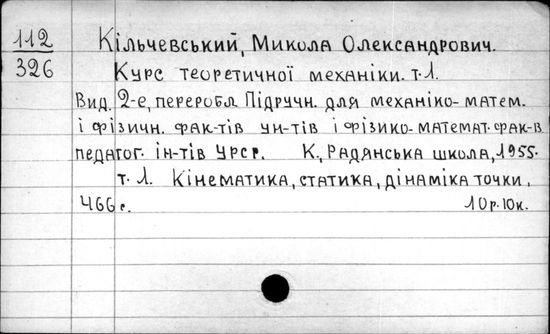 112
326
Кільчевський, Микола Олександрович.
Курс теоретичної механіки. т.1.
Вид. 2-е, переробл. Підручн. для механіко-матем.
і фізичн. фак-тів ун-тів і фізико-математ. фак-в
педагог. ін-тів УРСР. К., Радянська школа, 1955.
т. 1. Кінематика, статика, динаміка точки.
466 с. 10р.10к.